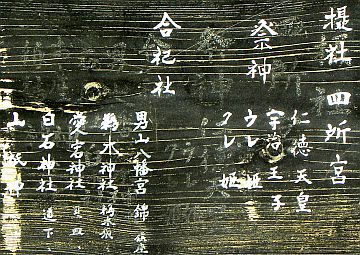 堤社四所宮
祭神
仁徳天皇
宇治王子
ウレ姫
クレ姫
合祀社
男山八幡宮 錦
粉木神社
愛宕神社
白石神社 道下
山祇神